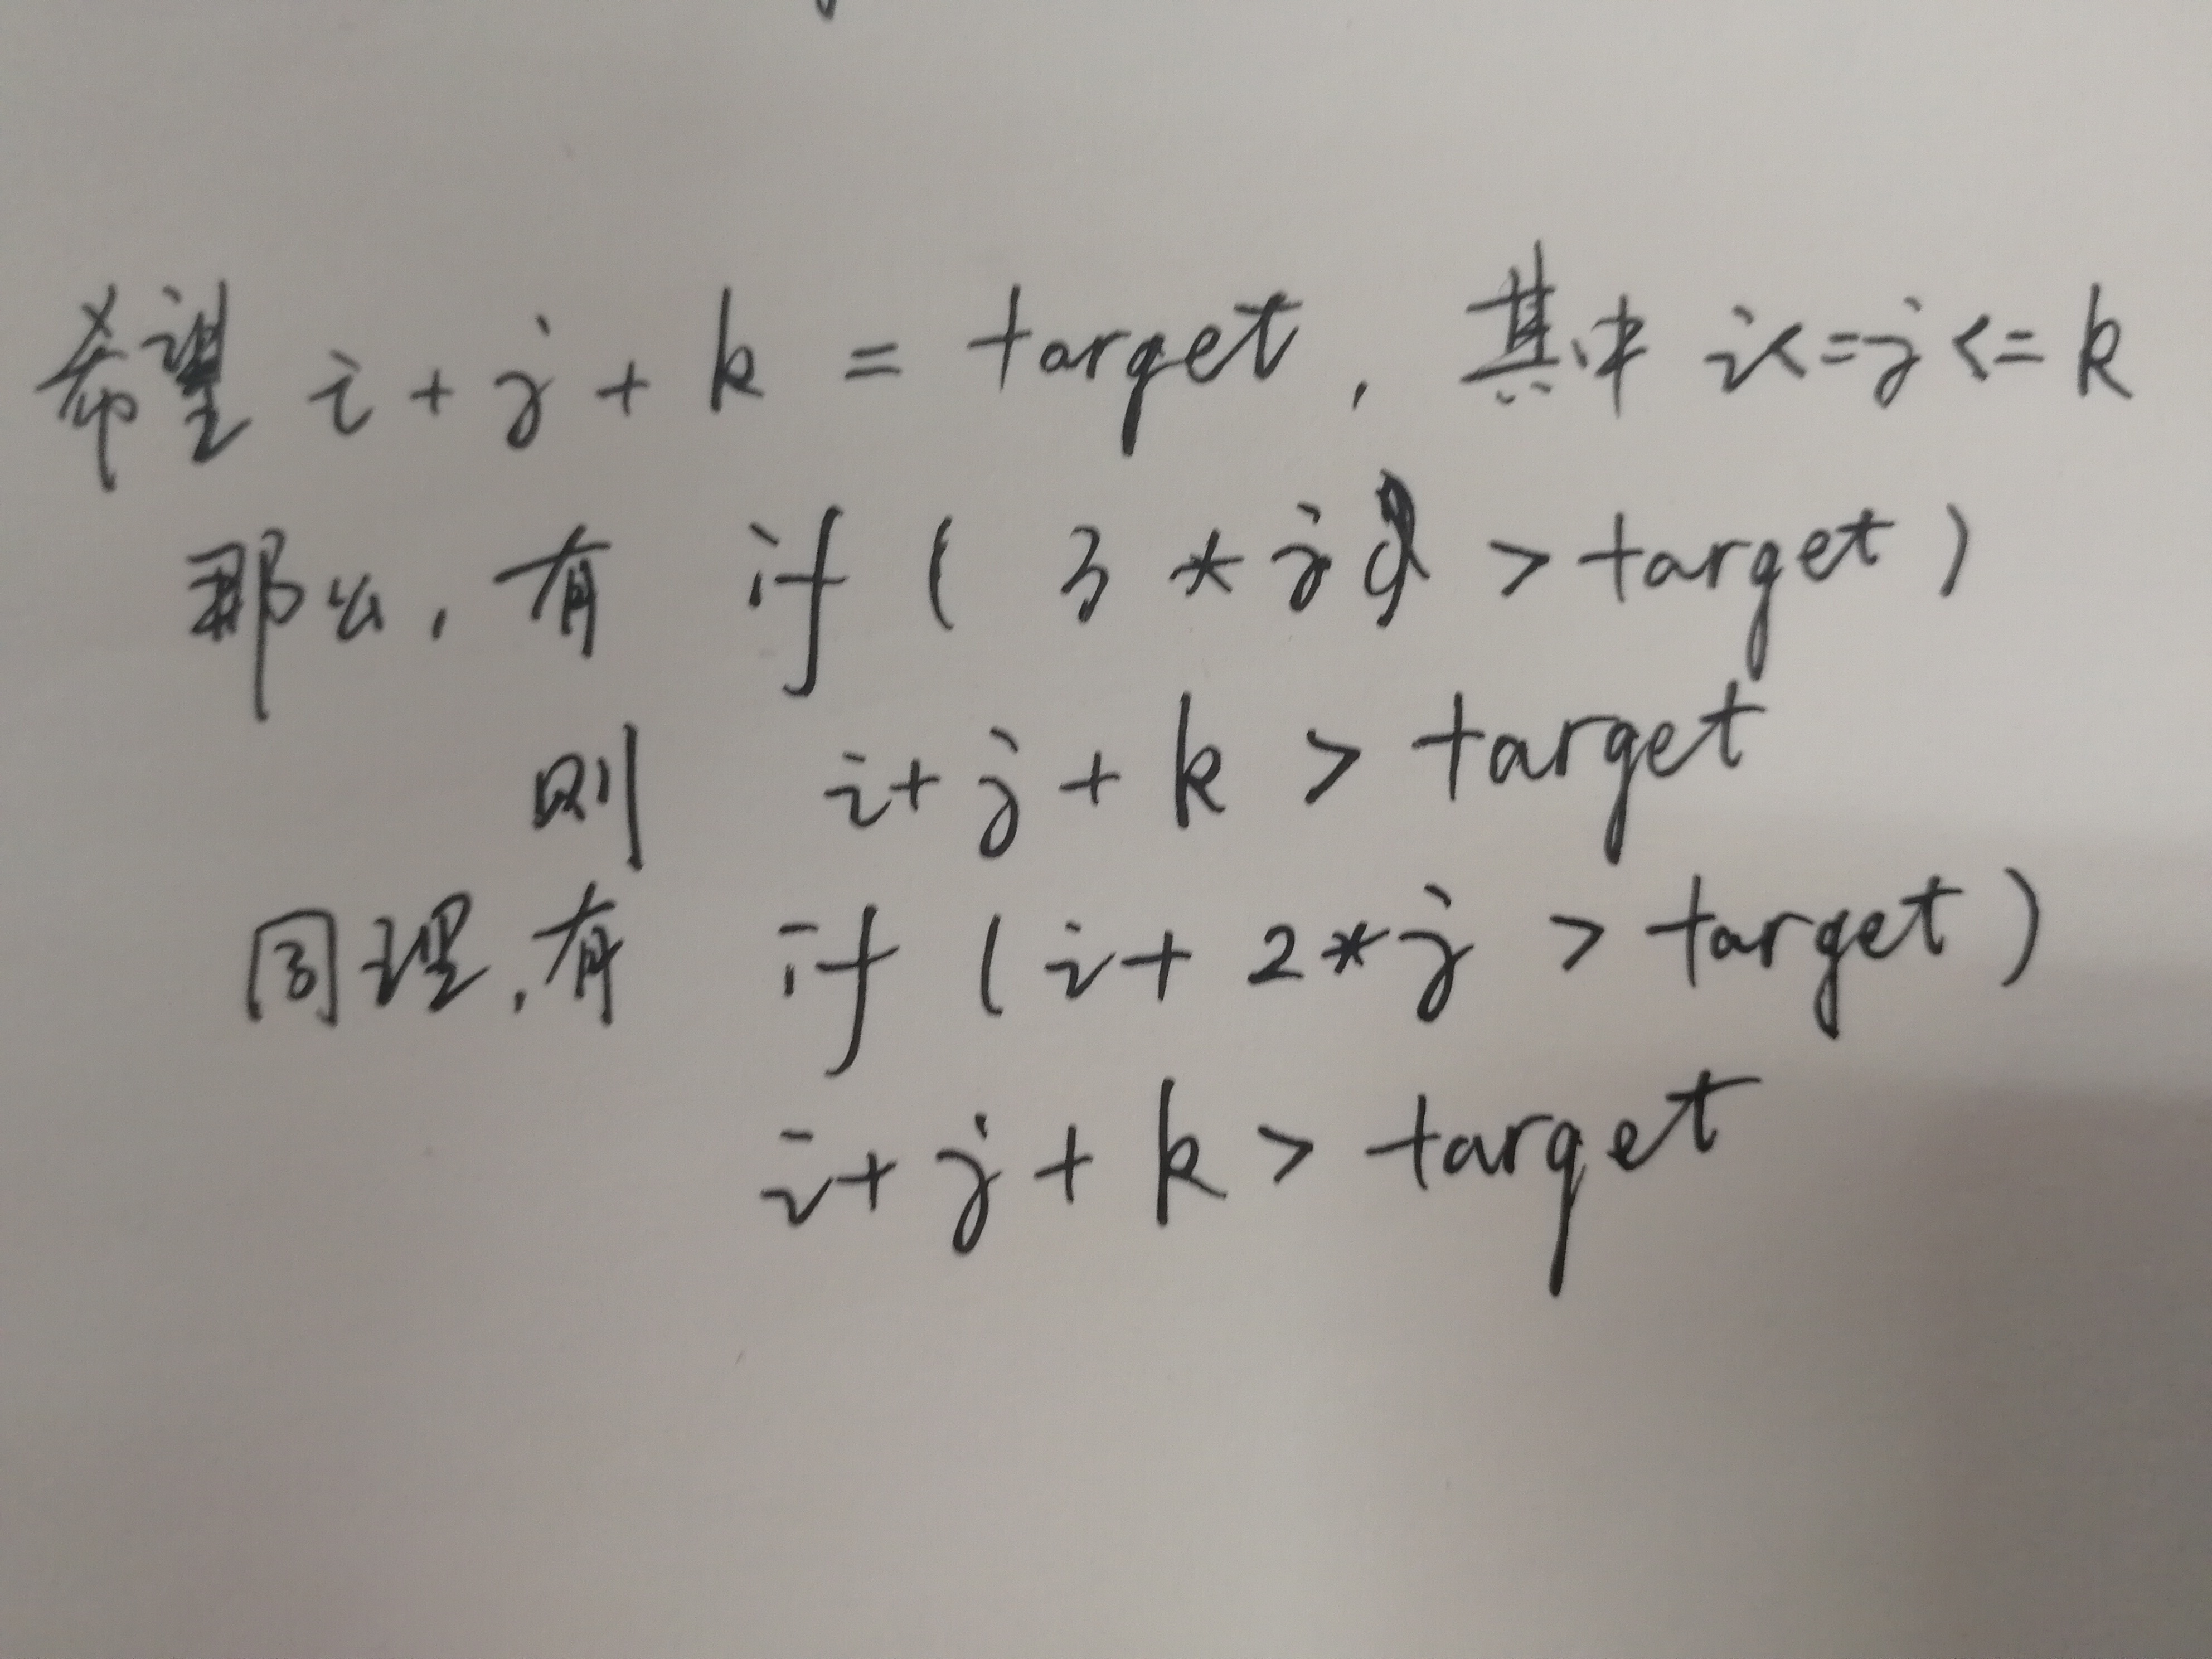 希望 i + j + k = target, 其中 i<=j<=k
那么, 有 if ( 3 * i > target )
则 i + j + k > target
同理, 有 if ( i + 2 * j > target )
i + j + k > target